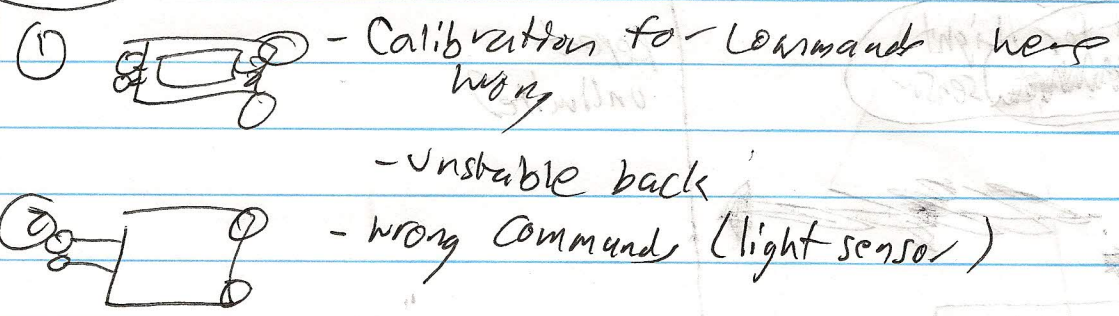 ① - Calibration for Commands were
wrong
- Unstable back
② - wrong Commands (light sensor)